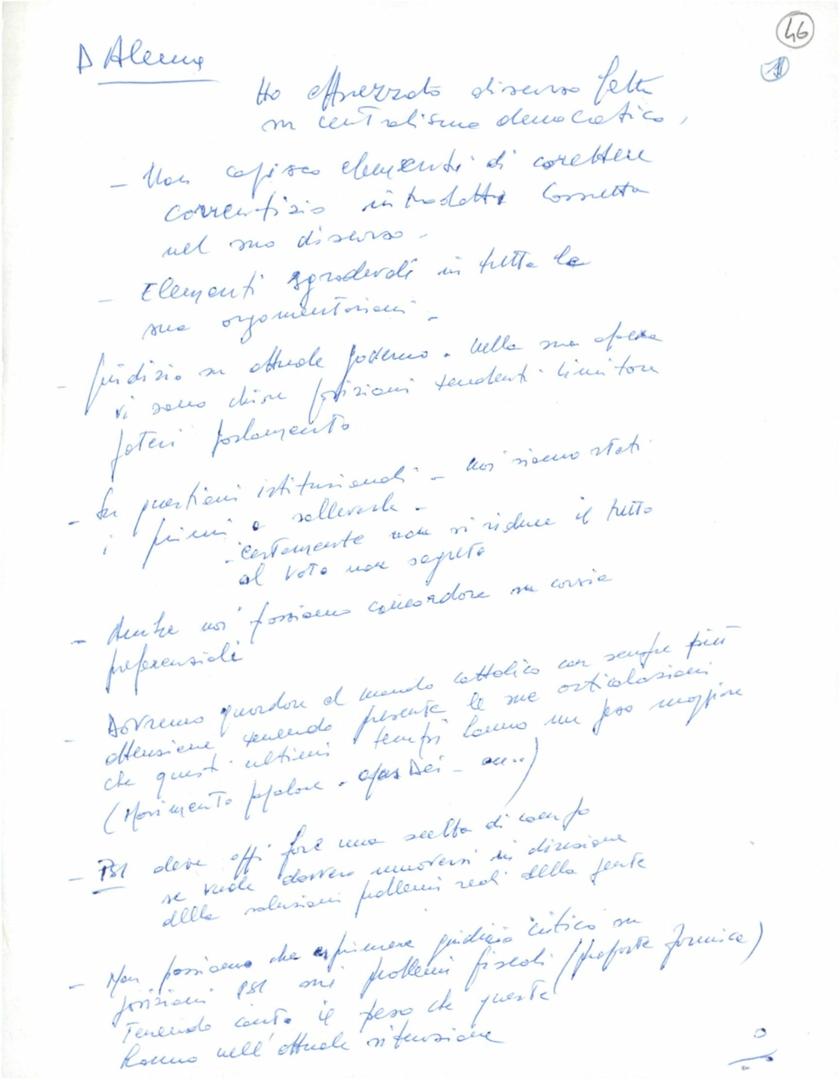 46
D'Alema
Ho apprezzato discorso fatto
su centralismo democratico,
- Non capisco elementi di carattere
correntizio introdotti Cossutta
nel suo discorso -
- Elementi sgradevoli in tutta la
sua argomentazioni -
- Giudizio su attuale governo - nella sua opera
vi sono chiare posizioni tendenti limitare
poteri parlamento
- Su questioni istituzionali - noi siamo stati
i primi a sollevarle -
- certamente non si riduce il tutto
al voto non segreto
- Anche noi possiamo concordare su corsie
preferenziali
- Dovremo guardare al mondo cattolico con sempre più
attenzione tenendo presente le sue articolazioni
che questi ultimi tempi hanno un peso maggiore
(Movimento popolare - Opus Dei -
- PSI deve oggi fare una scelta di campo
se vuole davvero muoversi in direzione
della soluzioni problemi reali della gente
- Non possiamo che esprimere giudizio critico su
posizioni PSI sui problemi fiscali (proposte Formica)
Tenendo conto il peso che queste
hanno nell'attuale situazione